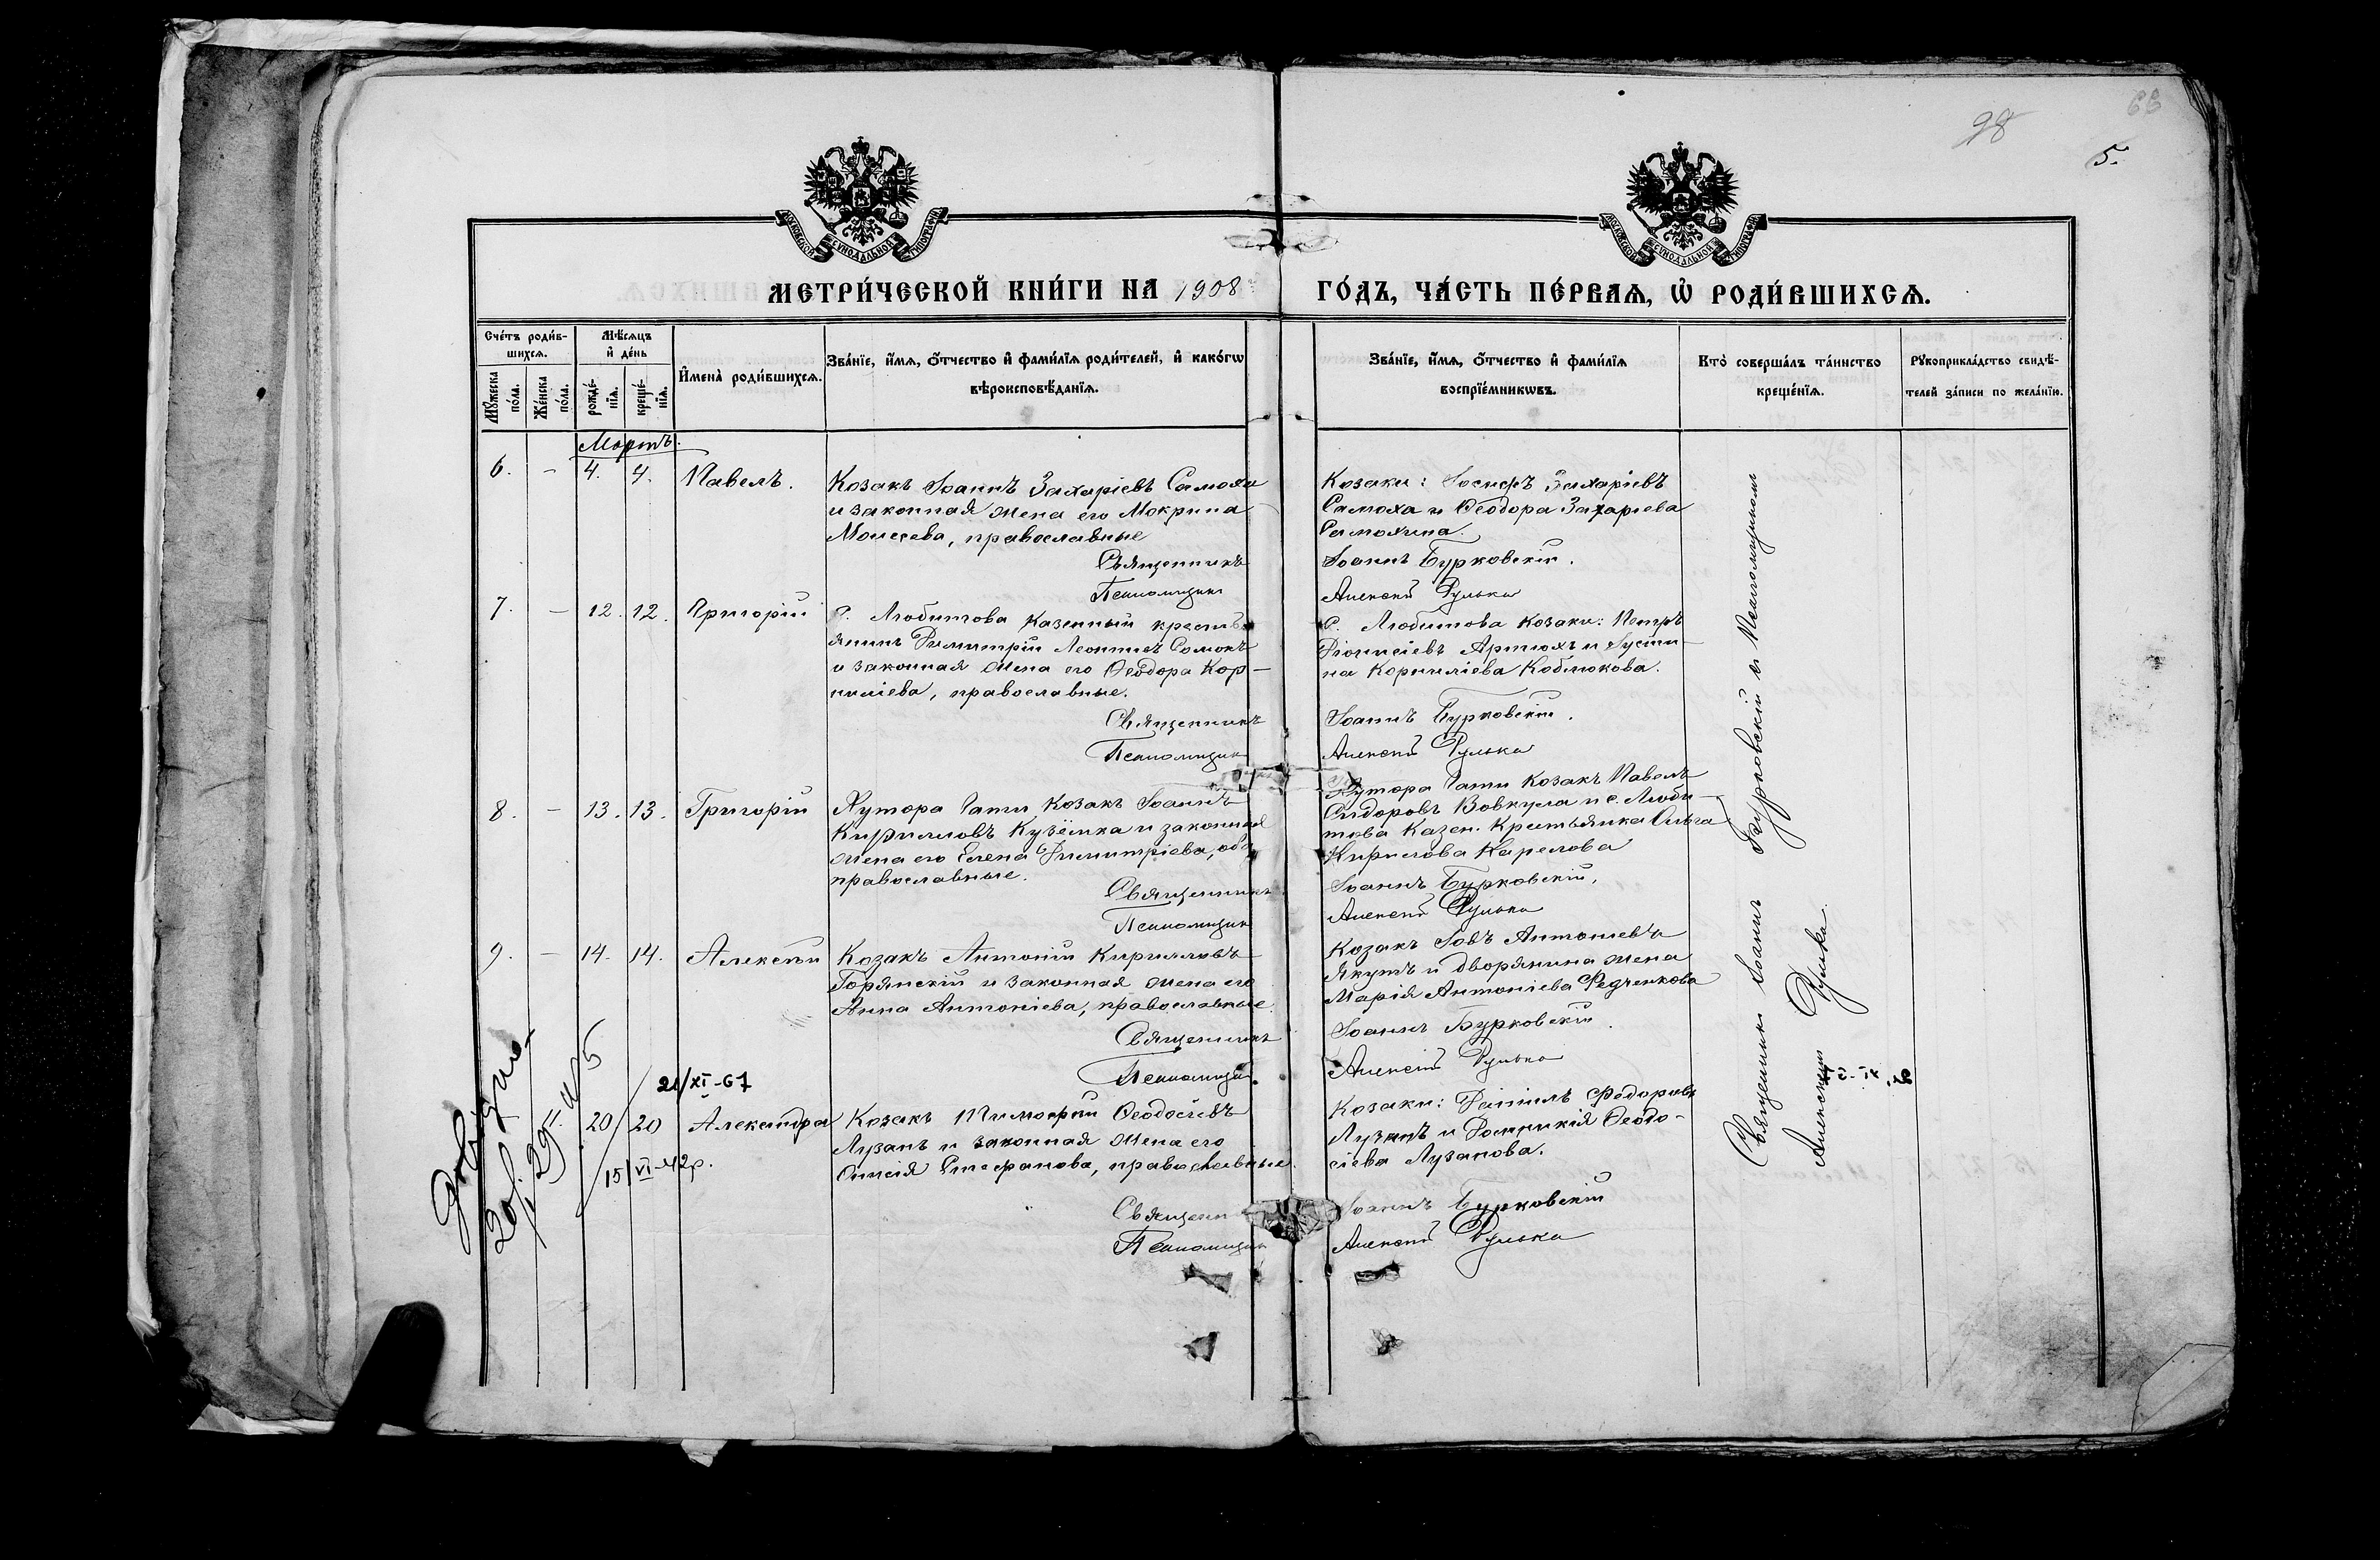 98
66
5.
МОСКОВСКОЙ СУНОДАЛЬНОЙ ТИПОГРАФІИ
МОСКОВСКОЙ СУНОДАЛЬНОЙ ТИПОГРАФІИ
МЕТРИ́ЧЕСКОЙ КНИ́ГИ НА 1908 ГО́ДЪ, ЧА́СТЬ ПЕ́РВАѦ, Ѡ РОДИ́ВШИХСѦ.
Сче́тъ роди́в-
шихсѧ.
Мꙋ́жеска по́ла.
Же́нска по́ла.
Мѣ́сѧцъ
и҆ де́нь
рожде́-
нїѧ.
креще́-
нїѧ.
И҆мена̀ роди́вшихсѧ.
Зва́нїе, и҆́мѧ, ѻ҆́тчество и҆ фами́лїѧ роди́телей, и҆ како́гѡ
вѣроисповѣ́данїѧ.
Зва́нїе, и҆́мѧ, ѻ҆́тчество и҆ фами́лїѧ
воспрїе́мникѡвъ.
Кто̀ соверша́лъ та́инство
креще́нїѧ.
Рꙋкоприкла́дство свидѣ́-
телей за́писи по жела́нїю.
Мартъ.
6. - 4. 4. Павелъ.
Козакъ Іоаннъ Захаріевъ Самоха
и законная жена его Мокрина
Моисеева, православные
Священникъ
Псаломщикъ
Козаки: Іосифъ Захаріевъ
Самоха и Ѳеодора Захарiева
Самохина.
Іоаннъ Бурковскій.
Алексѣй Рулька
7. - 12. 12. Григорій
С. Любитова казенный кресть
янинъ Димитрій Леонтиев
и законная жена его Ѳеодора Кор-
ниліева, православные.
Священникъ
Псаломщикъ
С. Любитова козаки: Петръ
Діонисіевъ Артюхъ и Іусти-
на Корниліева Коблюкова.
Іоаннъ Бурковскій.
Алексѣй Рулька
8. - 13. 13. Григорій
Хутора Гати козакъ Іоаннъ
Кирилловъ Кузёмка и законная
жена его Елена Димитріева, оба
православные.
Священникъ
Псаломщикъ
Хутора Гати козакъ Павелъ
Сидоровъ Вовкула и с. Люби-
това казен. крестьянка Ольга
Кирилова Карелова
Іоаннъ Бурковскій.
Алексѣй Рулька
9. - 14. 14. Алексѣй
Козакъ Антоній Кирилловъ
Горянскій и законная жена его
Анна Антоніева, православные.
Священникъ
Псаломщикъ
Козакъ Іовъ Антоніевъ
Якутъ и дворянина жена
Марія Антоніева Федченкова
Іоаннъ Бурковскій.
Алексѣй Рулька
21/XI-67
20 20 Александра
15/VI-42р.
Козакъ Тимоѳей Ѳеодосіевъ
Лузанъ и законная жена его
Стефанова, православные.
Священн
Псаломщикъ
Козаки: Даніилъ Федоровъ
Лузанъ и Домникія Ѳеодо-
сіева Лузанова.
Іоаннъ Бурковскій
Алексѣй Рулька
Священникъ Іоаннъ Бурковскій и Псаломщикъ
Алексѣй Рулька.